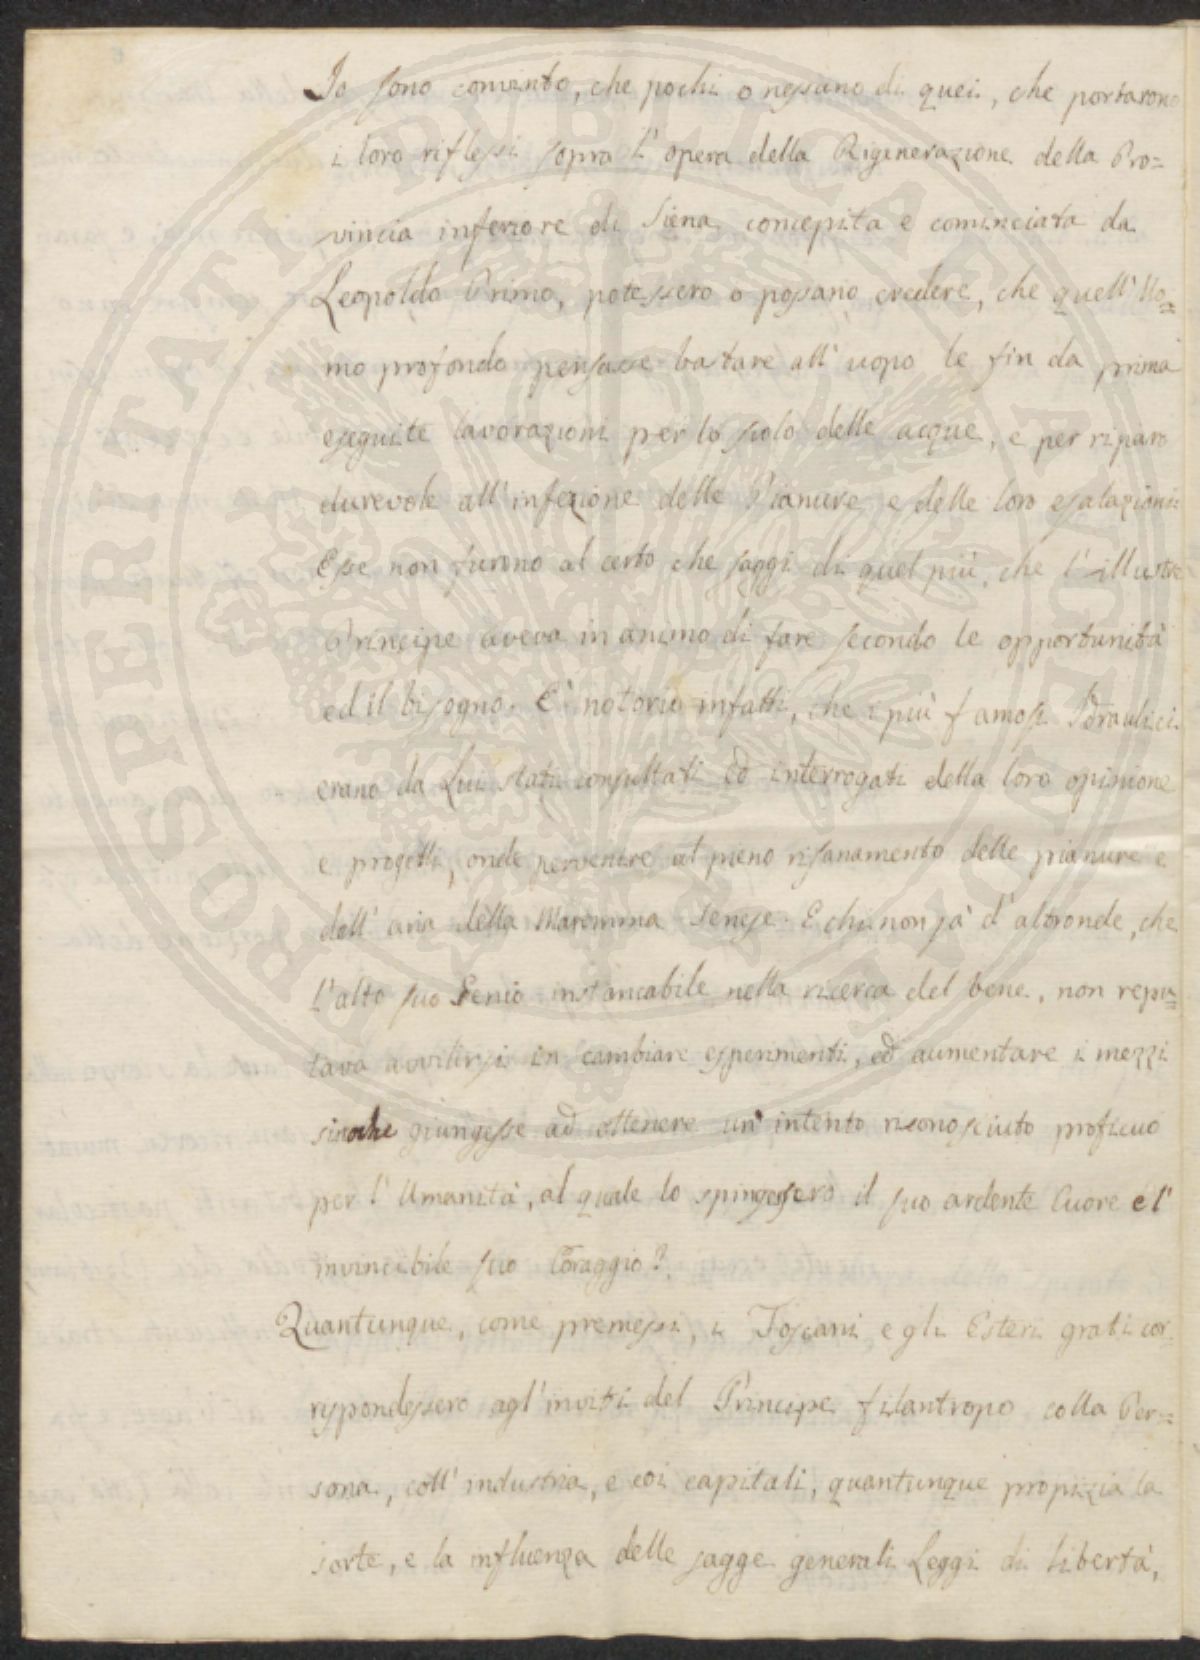 Io sono convinto, che pochi o nessuno di quei, che portarono
i loro riflessi sopra l'opera della Rigenerazione della Pro=
vincia inferiore di Siena concepita e cominciata da
Leopoldo Primo, potessero o possano credere, che quell'Uo=
mo profondo pensasse bastare all'uopo le fin da prima
eseguite lavorazioni per lo scolo delle acque, e per riparo
durevole all'infezione delle Pianure e delle loro esalazioni.
Esse non furono al certo che saggi di quel più, che l'illustre
Principe aveva in animo di fare secondo le opportunità
ed il bisogno. E' notorio infatti, che i più famosi Idraulici
erano da Lui stati consultati ed interrogati della loro opinione
e progetti, onde pervenire al pieno risanamento delle pianure e
dell'aria della Maremma Senese. E chi non sà d'altronde, che
l'alto suo Genio instancabile nella ricerca del bene, non repu=
tava avvilirsi in cambiare esperimenti, ed aumentare i mezzi
sinochè giungesse ad ottenere un'intento riconosciuto proficuo
per l'Umanità, al quale lo spingessero il suo ardente Cuore e l'
invincibile suo Coraggio?
Quantunque, come premessi, i Toscani, e gli Esteri grati cor=
rispondessero agl'inviti del Principe filantropo colla Per=
sona, coll'industria, e coi capitali, quantunque propizia la
sorte, e la influenza delle sagge generali Leggi di libertà,
PROSPERITATI PUBLICAE AUGENDAE